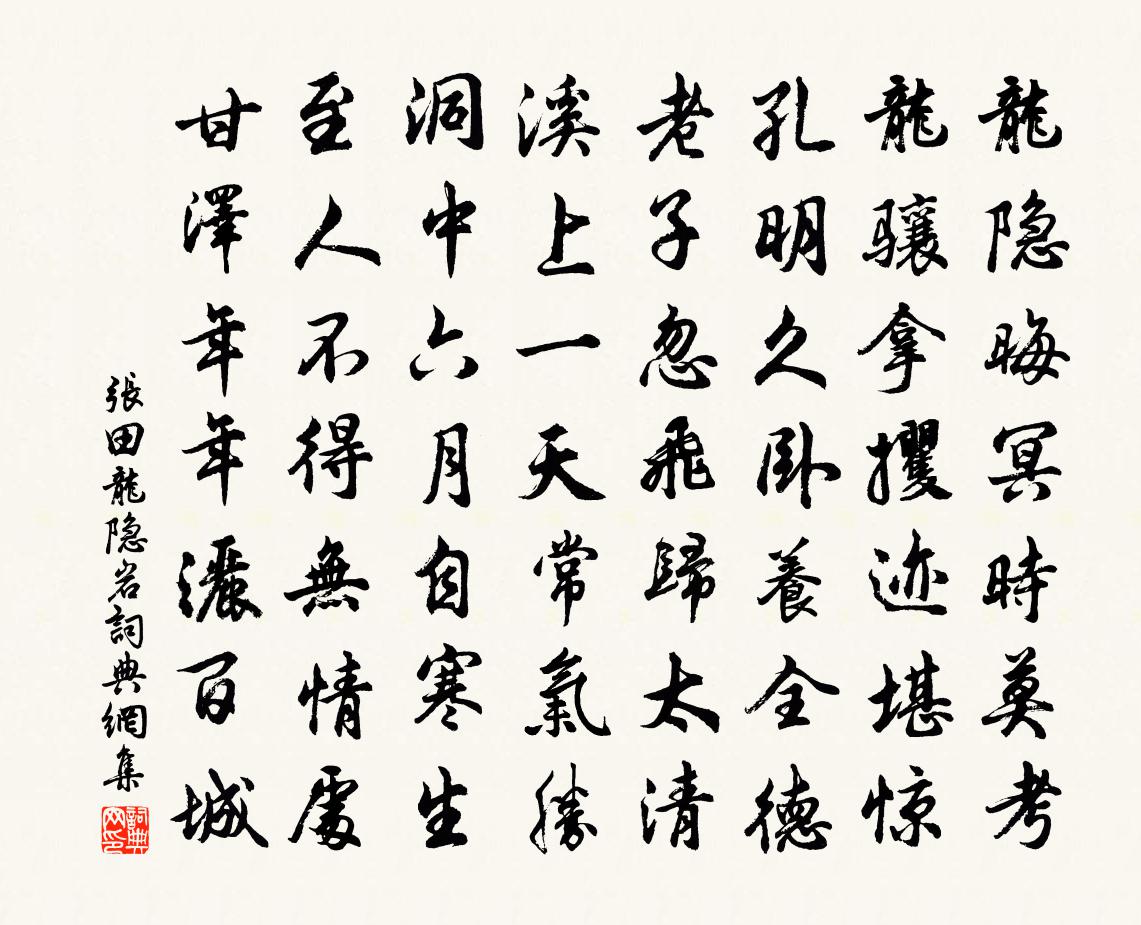 龍隐晦冥時莫考
龍骧拿攫迹堪惊
孔明久卧養全德
老子忽飛歸太清
溪上一天常氣勝
洞中六月自寒生
至人不得無情處
甘澤年年灑百城
張田龍隐岩詞典網集
詞典网印